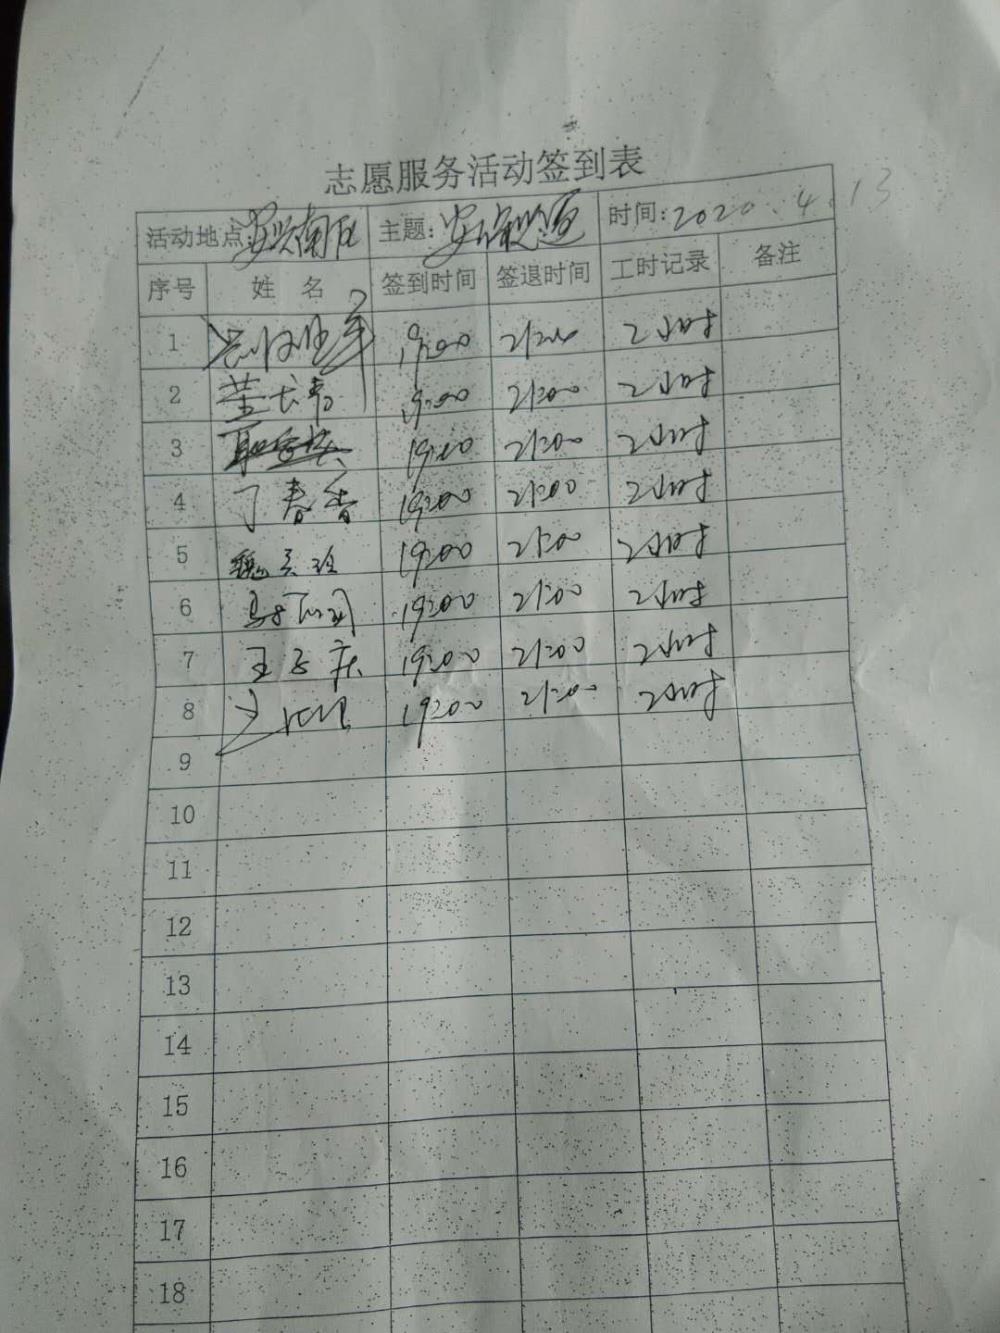 志愿服务活动签到表
活动地点:安兴南区 主题:安保巡逻 时间:2020.4.13
序号 姓名 签到时间 签退时间 工时记录 备注
1 19:00 21:00 2小时
2 董长青 19:00 21:00 2小时
3 19:00 21:00 2小时
4 丁春香 19:00 21:00 2小时
5 19:00 21:00 2小时
6 19:00 21:00 2小时
7 王玉庆 19:00 21:00 2小时
8 19:00 21:00 2小时
9
10
11
12
13
14
15
16
17
18